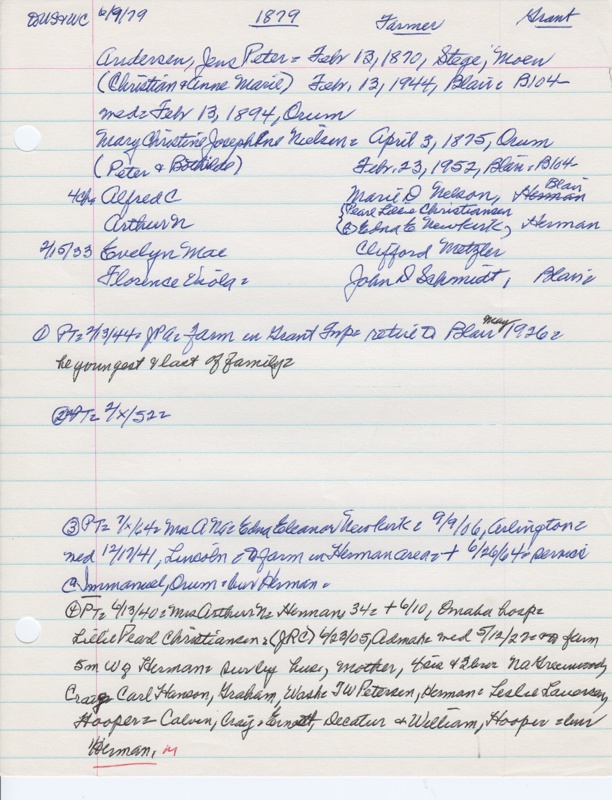 6/9/79 1879 Farmer Grant
Andersen, Jens Peter = Feb 13, 1870, Stege, Moen
(Christian & Anne Marie) Feb. 13, 1944, Blair = B104
med = Feb 13, 1894, Orum
Mary Christine Josephine Nielsen = April 3, 1875, Orum
(Peter & Bothilde) Feb. 23, 1952, Blair, B104
4 ch = Alfred C Marie D Nelson, Herman Blair
Arthur N (Pearl Christiansen
(2) Edna E Newkirk, Herman
2/15/33 Evelyn Mae Clifford Metzler
Florence Viola = John D Schmidt, Blair =
① PT = 2/13/44 = JPA = farm in Grant Twp = retire to Blair May 1926 =
he youngest & last of family =
② PT = 2/x/52 =
③ PT = 7/x/64 = Mrs A NA = Edna Eleanor Newkirk = 9/9/06, Arlington =
med 12/17/41, Lincoln = to farm in Herman area = + 6/26/64 = service
@ Immanuel, Orum = bur Herman =
④ PT = 6/13/40 = Mrs Arthur N = Herman, 34 = + 6/10, Omaha hosp =
Lillie Pearl Christiansen = (JRC) 6/23/05, Admah = med 5/12/27 = to farm
5 m W of Herman = surv by husb, mother, 4 sis & 3 bros Na Greenwood,
Craig = Carl Hanson, Graham, Wash = TW Petersen, Herman = Leslie Laursen,
Hooper = Calvin, Craig = Ernest, Decatur & William, Hooper = bur
Herman. M